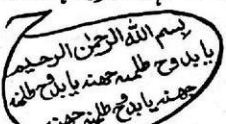 بسم الله الرحمن الرحيم
يا بدوح طلمنه جهنه يا بدوح طلمنه
جهنه يا بدوح طلمنه جهنه